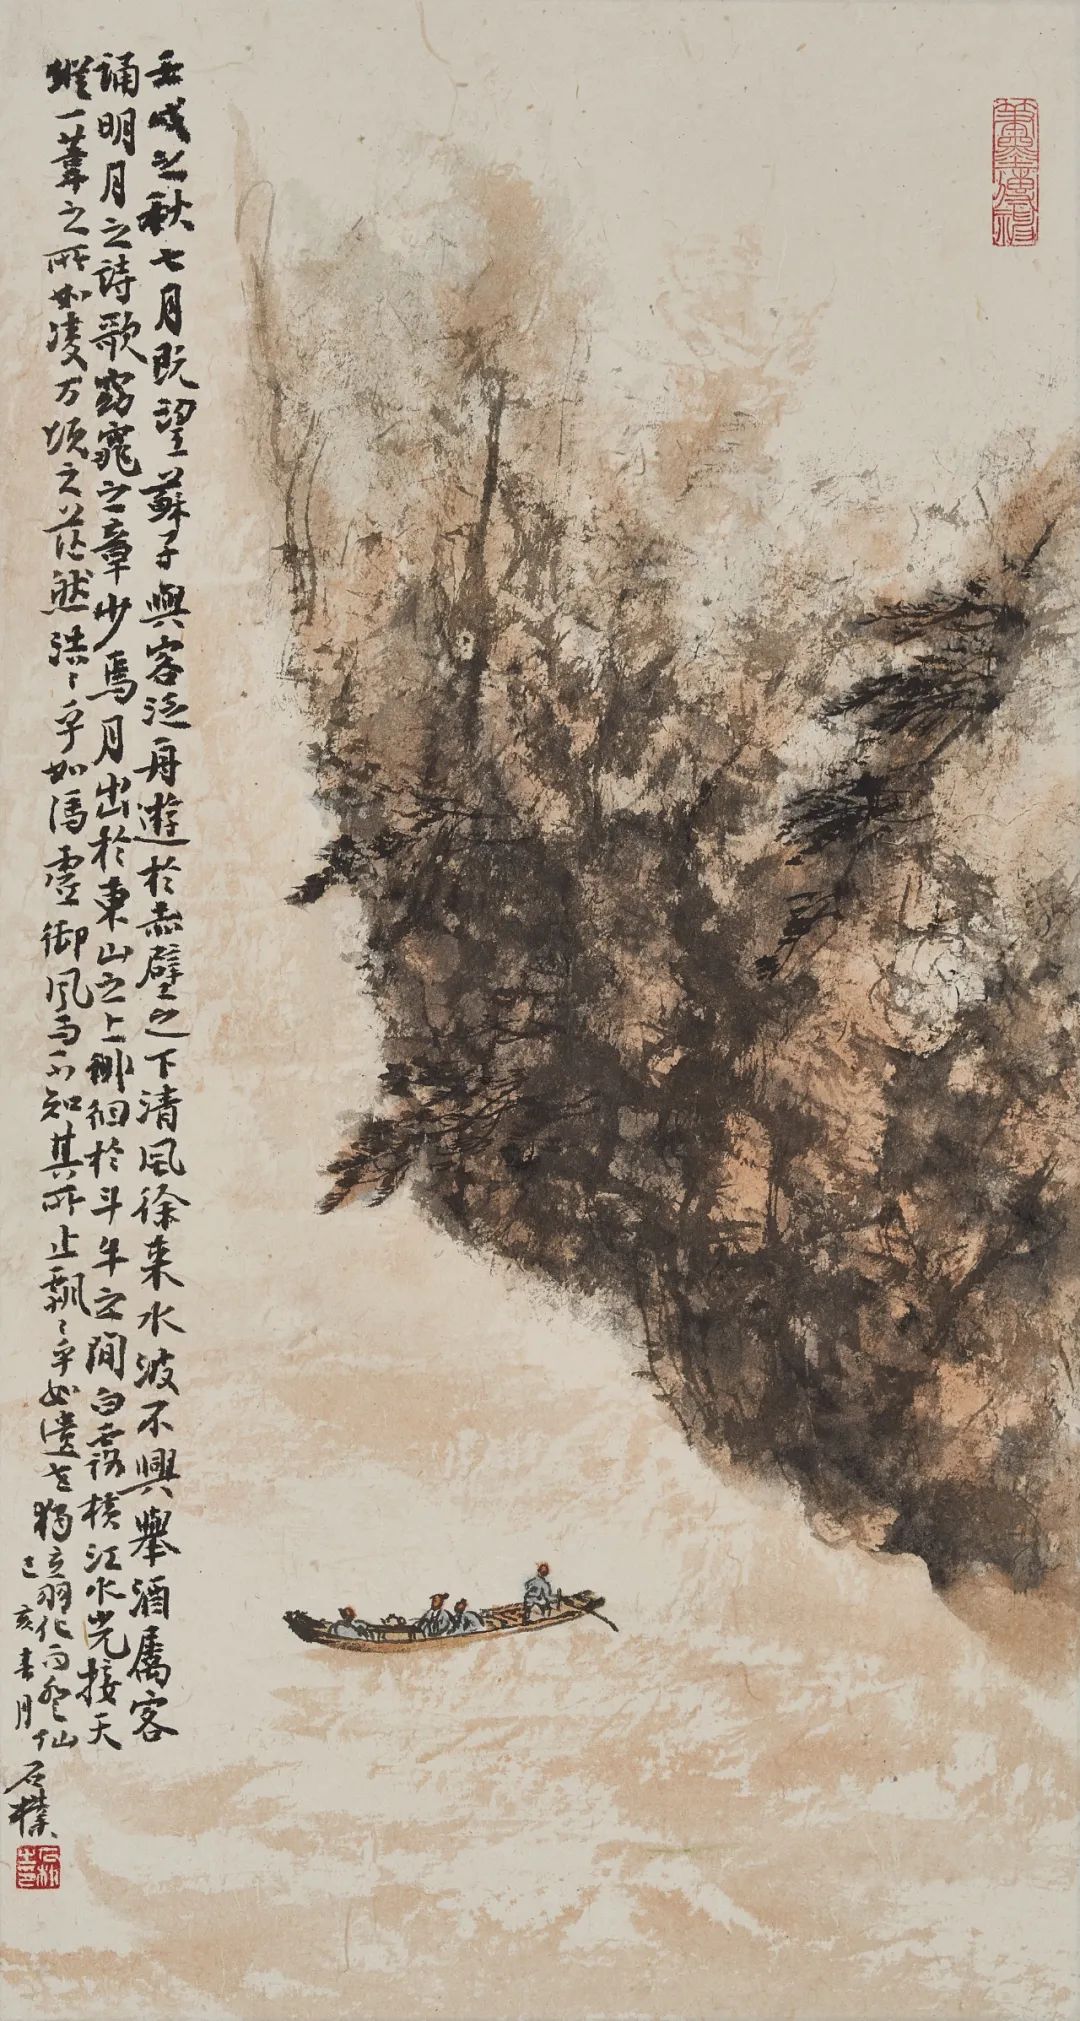 壬戌之秋七月既望蘇子與客泛舟遊於赤壁之下清風徐來水波不興舉酒屬客
誦明月之詩歌窈窕之章少焉月出於東山之上徘徊於斗牛之間白露橫江水光接天
縱一葦之所如凌萬頃之茫然浩〻乎如馮虛御風而不知其所止飄〻乎如遺世獨立羽化而登仙
己亥春月
石樸